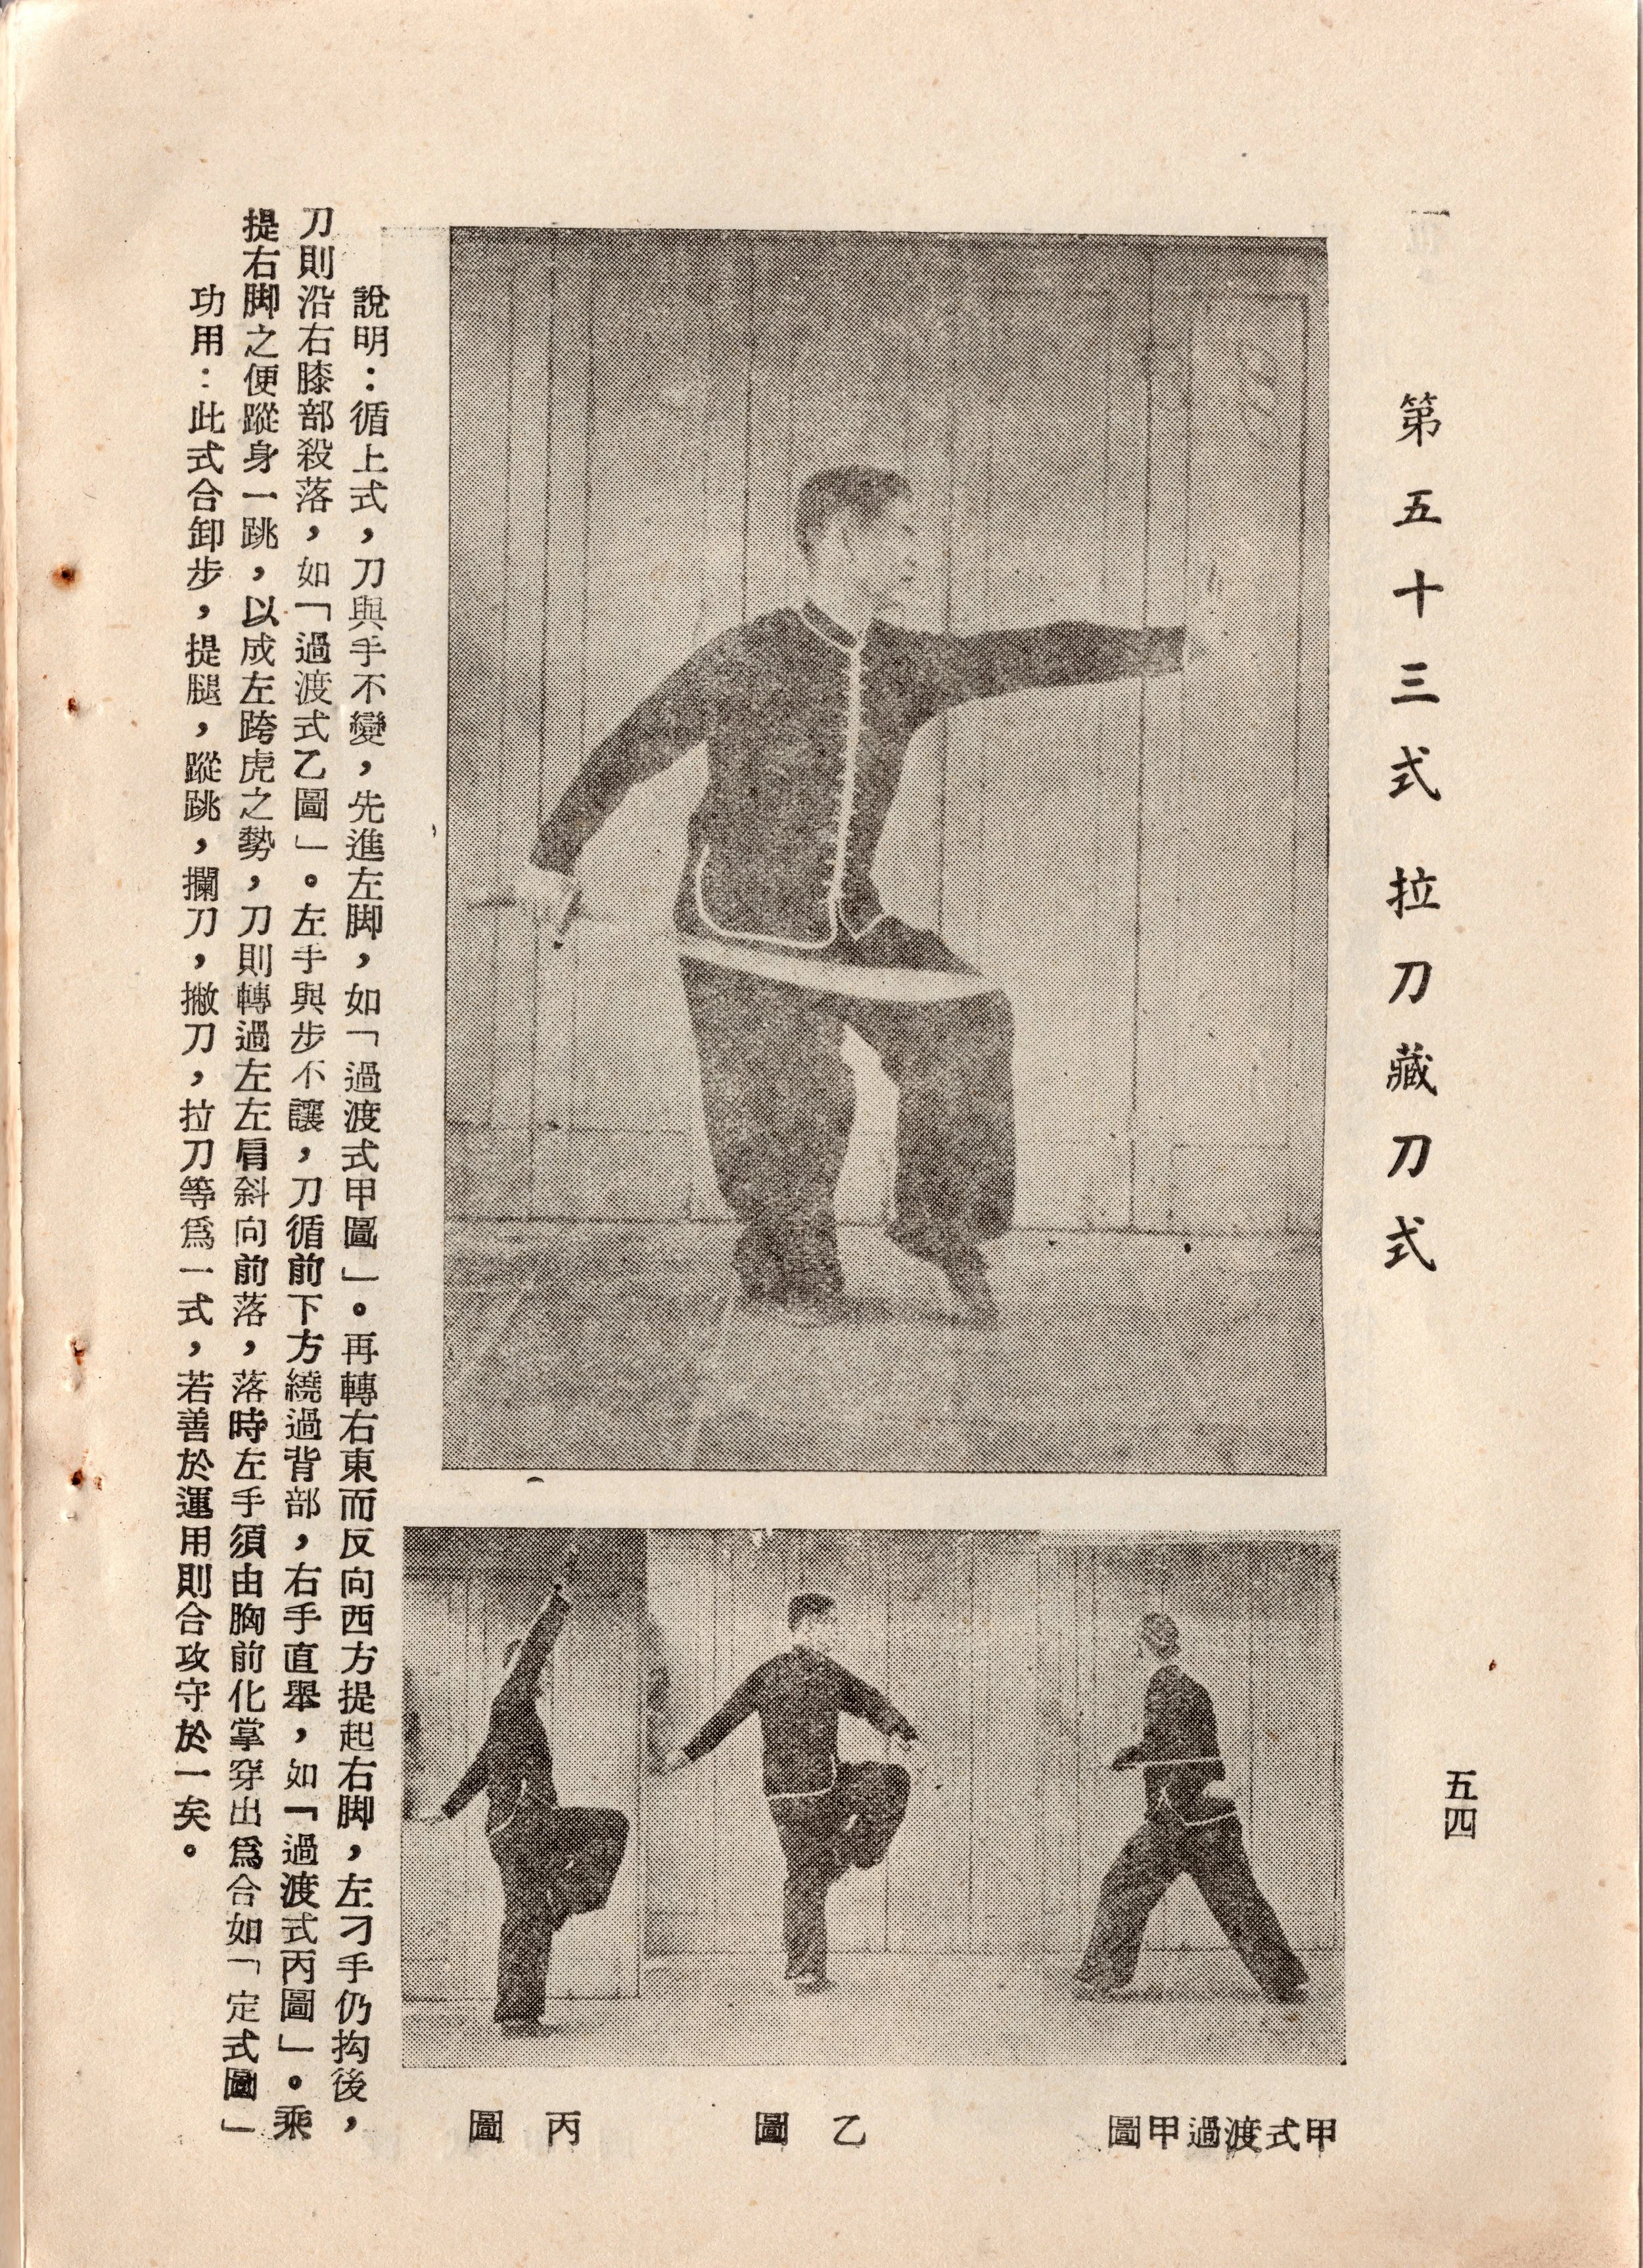 第五十三式 拉刀藏刀式
五四
甲式渡過甲圖
乙圖
丙圖
說明：循上式，刀與手不變，先進左脚，如「過渡式甲圖」。再轉右東而反向西方提起右脚，左刁手仍抅後，
刀則沿右膝部殺落，如「過渡式乙圖」。左手與步不讓，刀循前下方繞過背部，右手直舉，如「過渡式丙圖」。乘
提右脚之便蹤身一跳，以成左跨虎之勢，刀則轉過左左肩斜向前落，落時左手須由胸前化掌穿出爲合如「定式圖」
功用：此式合卸步，提腿，蹤跳，攔刀，撇刀，拉刀等爲一式，若善於運用則合攻守於一矣。